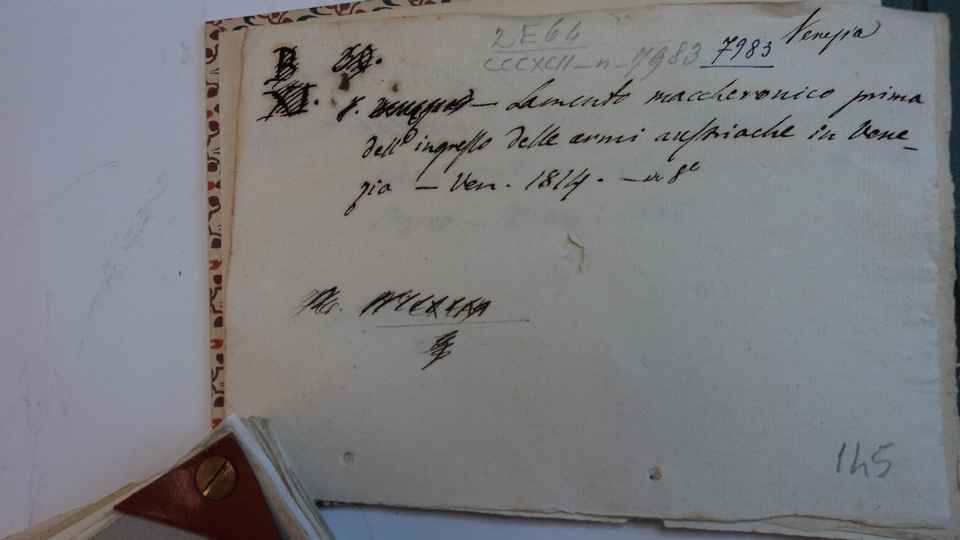 2E66
CCCXCII - n - 7983 7983 Venezia
Lamento maccheronico prima
dell' ingresso delle armi austriache in Vene-
zia - Ven. 1814. - in 8°
145